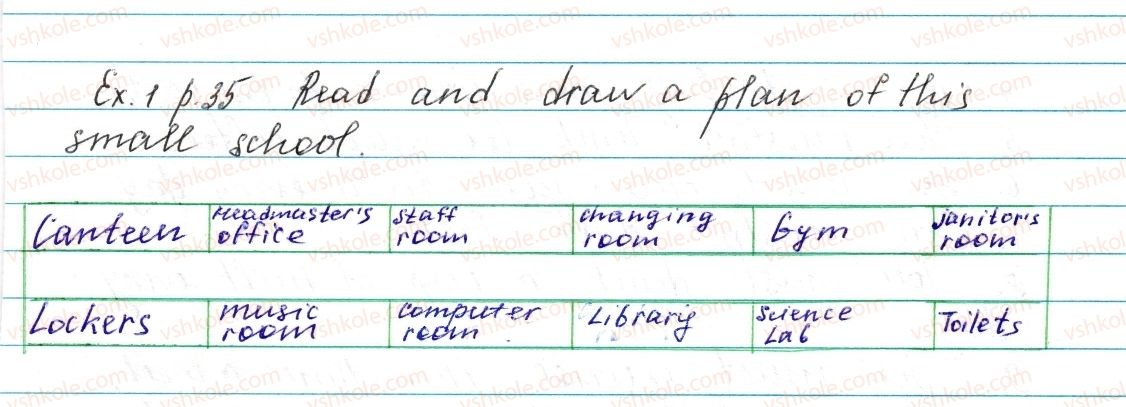 Ex. 1 p.35 Read and draw a plan of this
small school.
Canteen Headmaster's office staff room changing room Gym janitor's room
Lockers music room computer room Library science Lab Toilets
vshkole.com